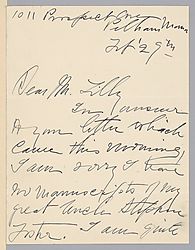 1011 Prospect Ave
Pelham Manor
Feb 29th
Dear Mr. Lilly
In answer
to your letter which
came this morning,
I am sorry I have
no manuscripts of my
great Uncle Stephen
Foster. I am quite